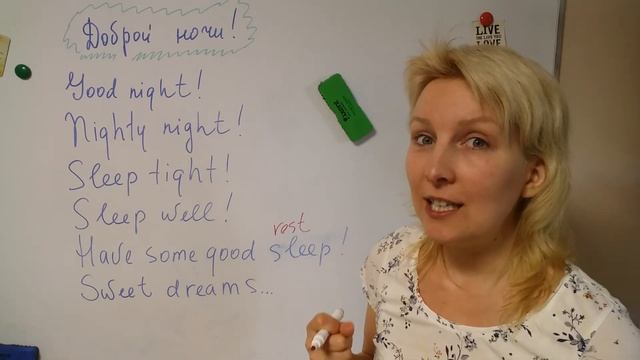 Доброй ночи!
Good night!
Nighty night!
Sleep tight!
Sleep well!
rest
Have some good sleep!
Sweet dreams...
LIVE
LOVE